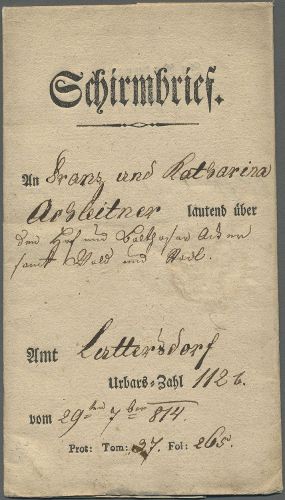 Schirmbrief.
An Franz und Katharina
Achleitner lautend über
den Hof und Balthasar Acker
samt Wald und
Amt Lattersdorf
Urbars-Zahl 112
vom 29ten 7ber 814
Prot: Tom: 37. Fol: 265.